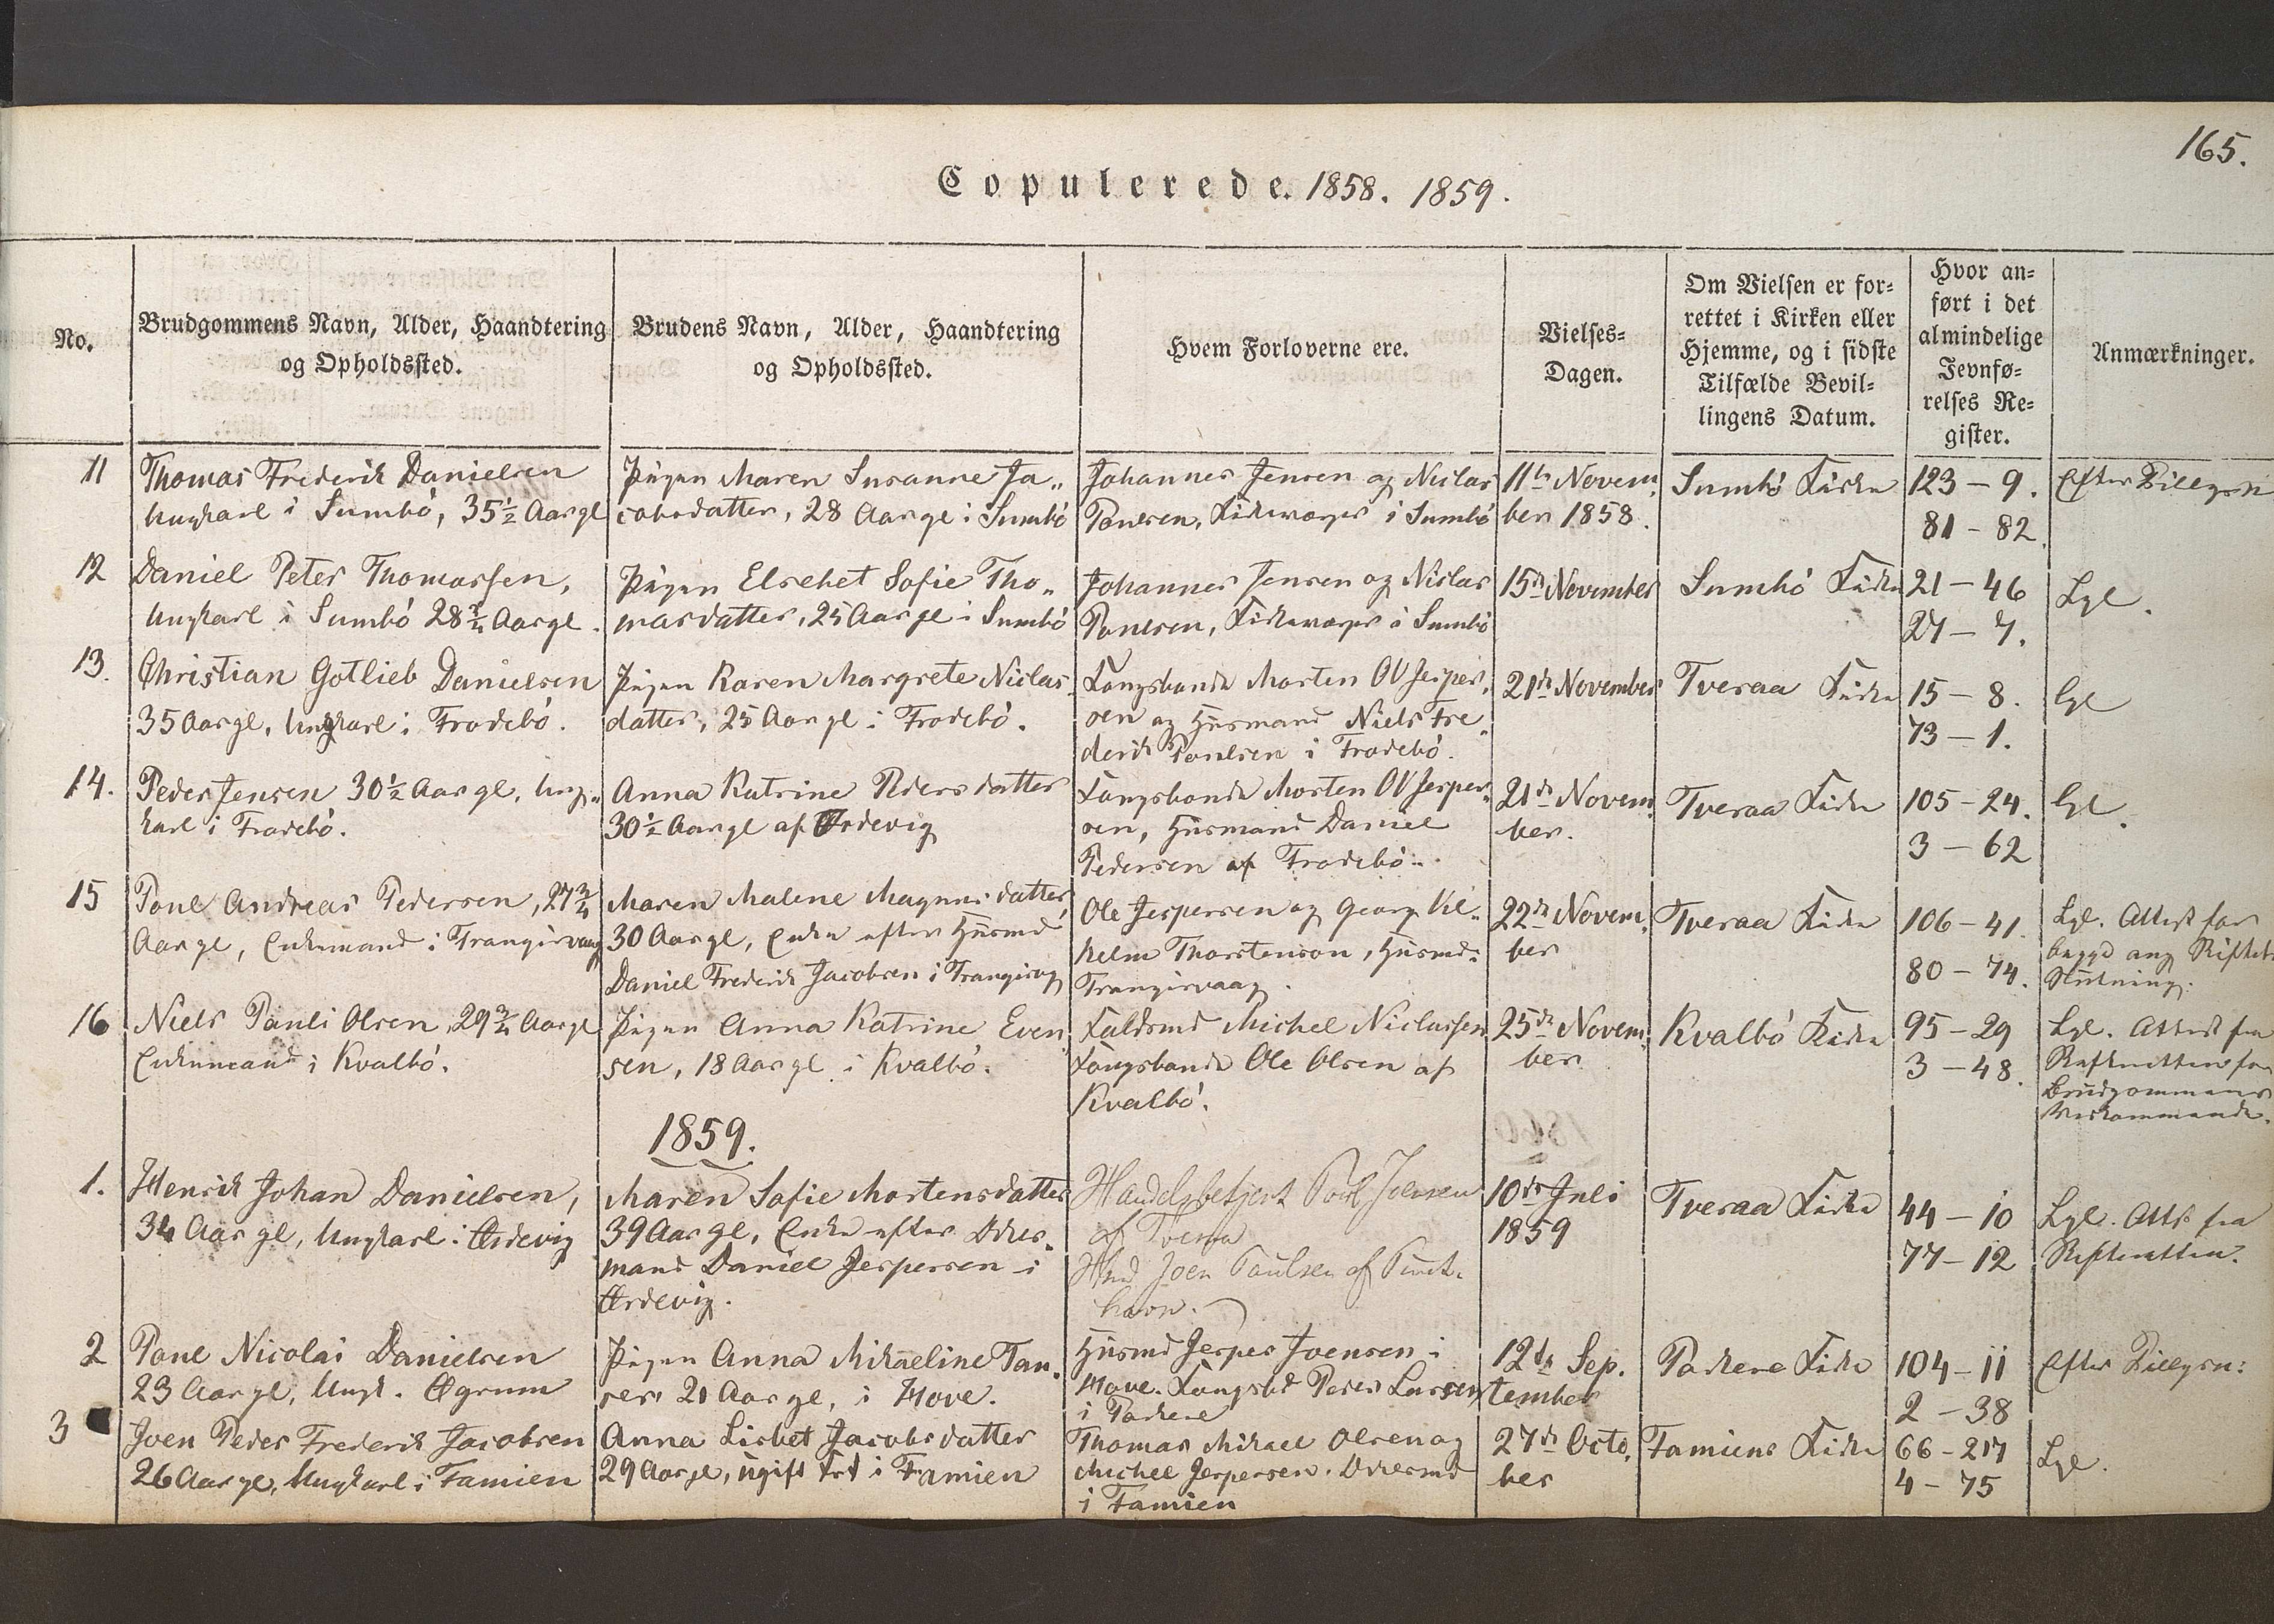 165.
Copulerede. 1858. 1859.
No.
Brudgommens Navn, Alder, Haandtering
og Opholdssted.
Brudens Navn, Alder, Haandtering
og Opholdssted.
Hvem Forloverne ere.
Vielses-
Dagen.
Om Vielsen er for-
rettet i Kirken eller
Hjemme, og i sidste
Tilfælde Bevil-
lingens Datum.
Hvor an-
ført i det
almindelige
Jevnfø-
relses Re-
gister.
Anmærkninger.
11
Thomas Frederik Danielsen
Ungkarl i Sumbö, 35 1/2 Aar gl
Pigen Maren Susanne Ja„
cobsdatter, 28 Aar gl i Sumbö
Johannes Jensen og Niclas
Poulsen, Kirkeværger i Sumbö
11te Novem
ber 1858.
Sumbö Kirke
123 - 9.
81 - 82.
Efter Tillysn
12
Daniel Peter Thomassen,
Ungkarl i Sumbö 28 3/4 Aar gl.
Pigen Elsebet Sofie Tho„
masdatter, 25 Aar gl i Sumbö
Johannes Jensen og Niclas
Poulsen, Kirkeværger i Sumbö
15de November
Sumbö Kirke
21 - 46
27 - 7.
Lgl.
13.
Christian Gotlieb Danielsen
35 Aar gl, Ungkarl i Frodebö.
Pigen Karen Margrete Niclas„
datter, 25 Aar gl i Frodebö.
Kongsbonde Morten OV Jesper„
sen og Huusmand Niels Fre„
derik Poulsen i Frodebö.
21de November
Tveraa Kirke
15 - 8.
73 - 1.
Lgl
14.
Peder Jensen 30 1/2 Aar gl, Ung„
karl i Frodebö.
Anna Katrine Pedersdatter
30 1/2 Aar gl af Ordevig
Kongsbonde Morten OV Jesper„
sen, Huusmand Daniel
Pedersen af Frodebö.
21de Novem
ber.
Tveraa Kirke
105 - 24.
3 - 62
Lgl.
15
Poul Andreas Pedersen, 27 3/4
Aar gl, Enkemand i Trangisvaag
Maren Malene Magnusdatter,
30 Aar gl, Enke efter Huusmd
Daniel Frederik Jacobsen i Trangisvg
Ole Jespersen og Georg Vil„
helm Thorstenson, Huusmd:
Trangisvaag.
22de Novem.
ber
Tveraa Kirke
106 - 41.
80 - 74.
Lgl. Attest for
begge ang Skiftets
Slutning.
16
Niels Pauli Olsen, 29 3/4 Aar gl
Enkemand i Kvalbö.
Pigen Anna Katrine Even
sen, 18 Aar gl i Kvalbö.
Michel Niclassen
Kongsbonde Ole Olsen af
Kvalbö.
25de Novem.
ber
Kvalbö Kirke
95 - 29
3 - 48.
Lgl. Attest fra
Skifteretten for
Brudgommens
Vedkommende.
1859.
1.
Henrik Johan Danielsen,
34 Aar gl, Ungkarl i Ordevig
Maren Sofie Mortensdatter
39 Aar gl, Enke efter
mand Daniel Jespersen i
Ordevig.
Handelsbetjent Poul Joensen
af Tveraa
Hmd Joen Paulsen af
havn.
10de Juli
1859
Tveraa Kirke
44 - 10
77 - 12
Lgl. Att. fra
Skifteretten.
2
Poul Nicolai Danielsen
23 Aar gl, Ungk. Ogrum
Pigen Anna Mikaeline Tau„
sen 21 Aar gl, i Hove.
Huusmd Jesper Joensen i
Hove. Kongsbd Peder Larsen
i Porkere
12te Sep.
tember
Porkere Kirke
104 - 11
2 - 38
Efter Tillysn:
3
Joen Peder Frederik Jacobsen
26 Aar gl, Ungkarl i Famien
Anna Lisbet Jacobsdatter
29 Aar gl, ugift i Famien
Thomas Mikael Olsen og
Michel Jespersen.
i Famien
27de Octo.
ber
Famiens Kirke
66 - 217
4 - 75
Lgl.